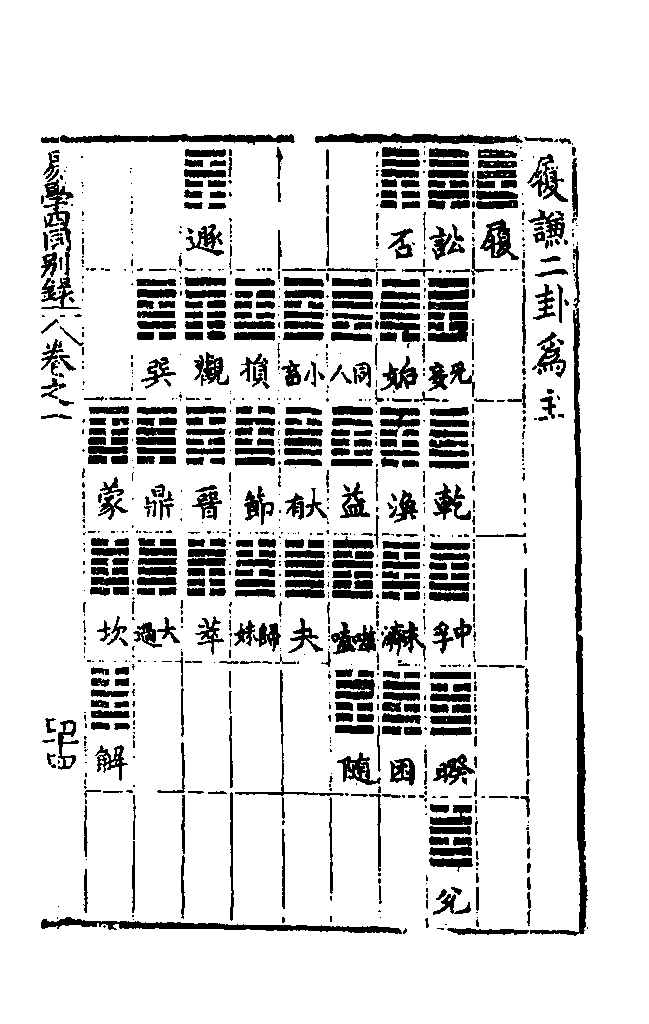 履謙二卦爲主
履 訟 否 遯
无妄 姤 同人 小畜 損 觀 巽
乾 渙 益 大有 節 晉 鼎 蒙
中孚 未濟 噬嗑 夬 歸妹 萃 大過 坎
睽 困 隨 解
兌
易學四同別錄 卷之一